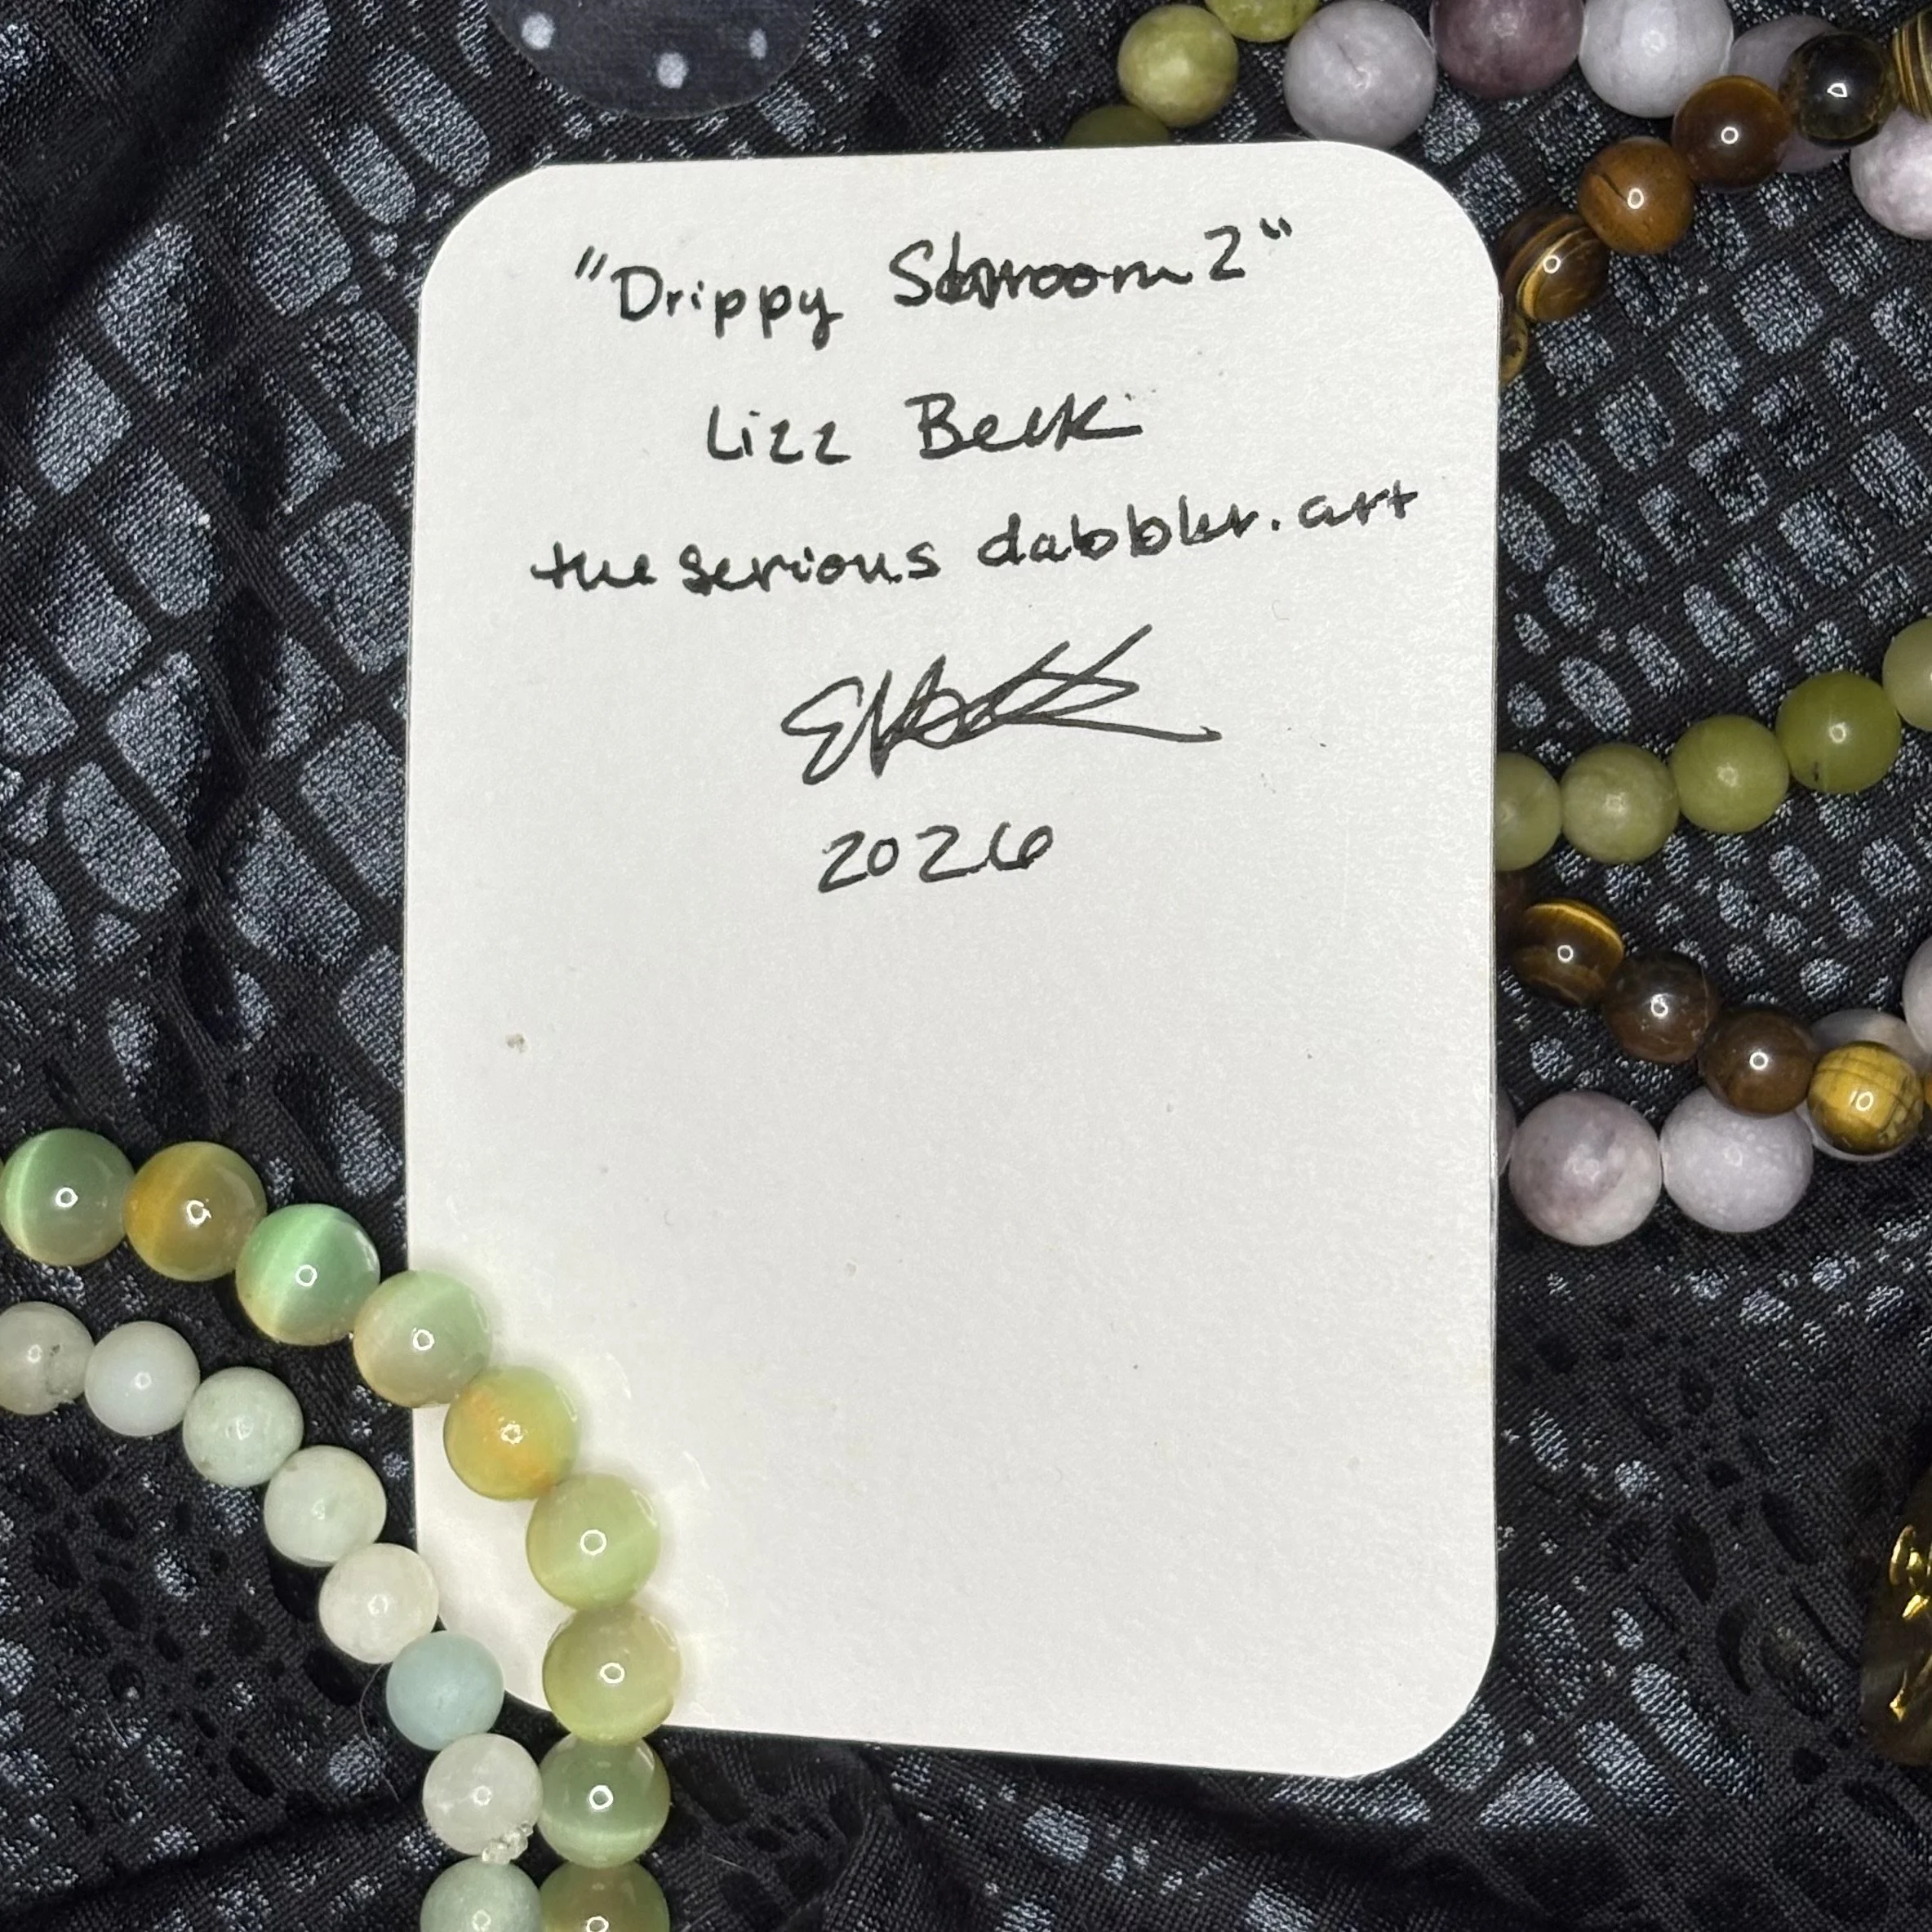 "Drippy Shroom 2"
Lizz Beck
the serious dabbler.art
2026